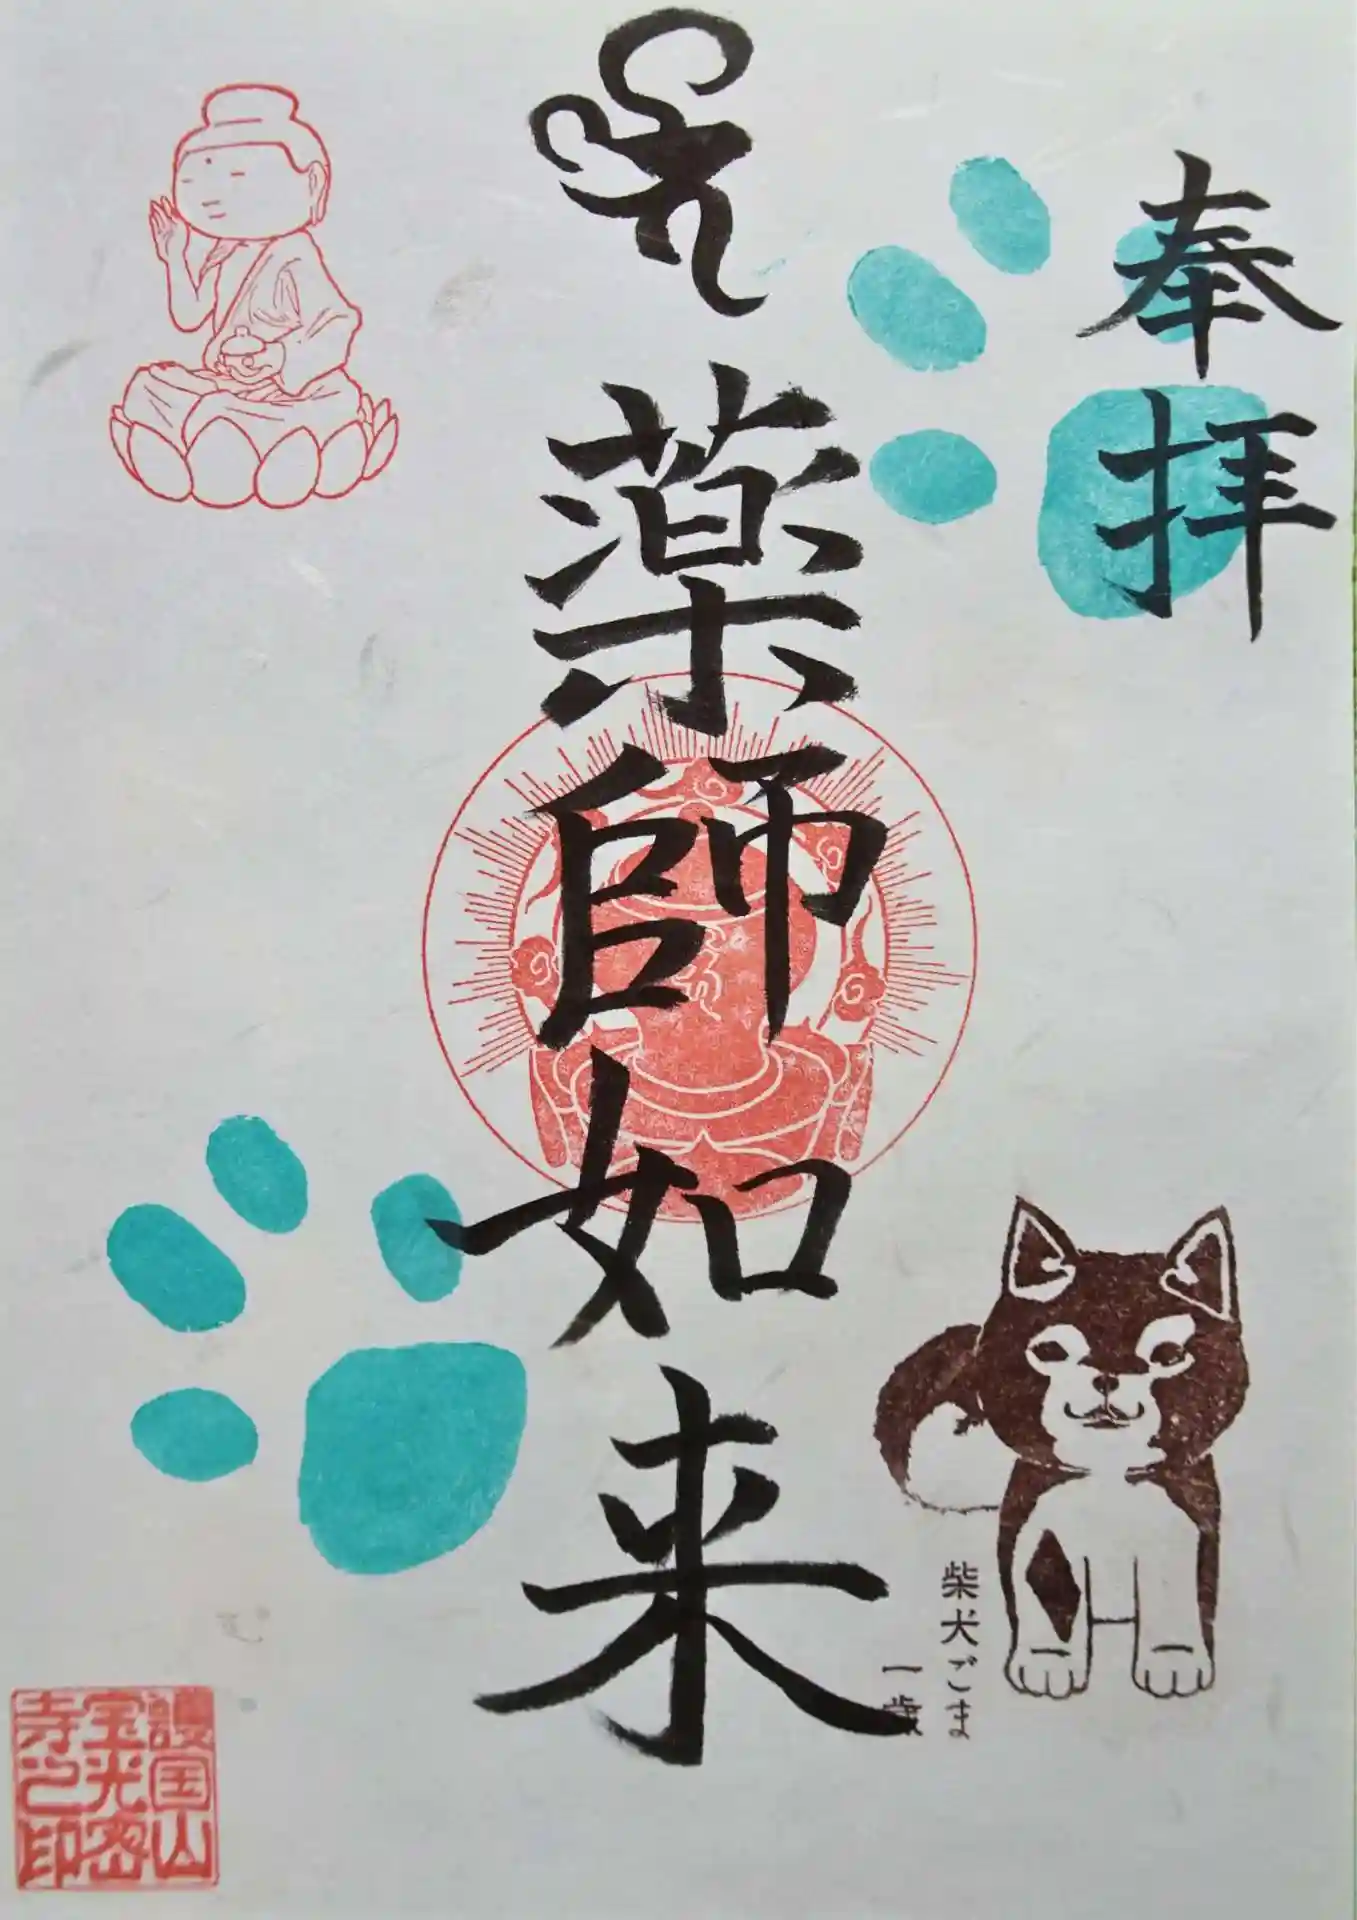 奉拝
薬師如来
柴犬ごま
一歳
護国山
宝光密
寺之印